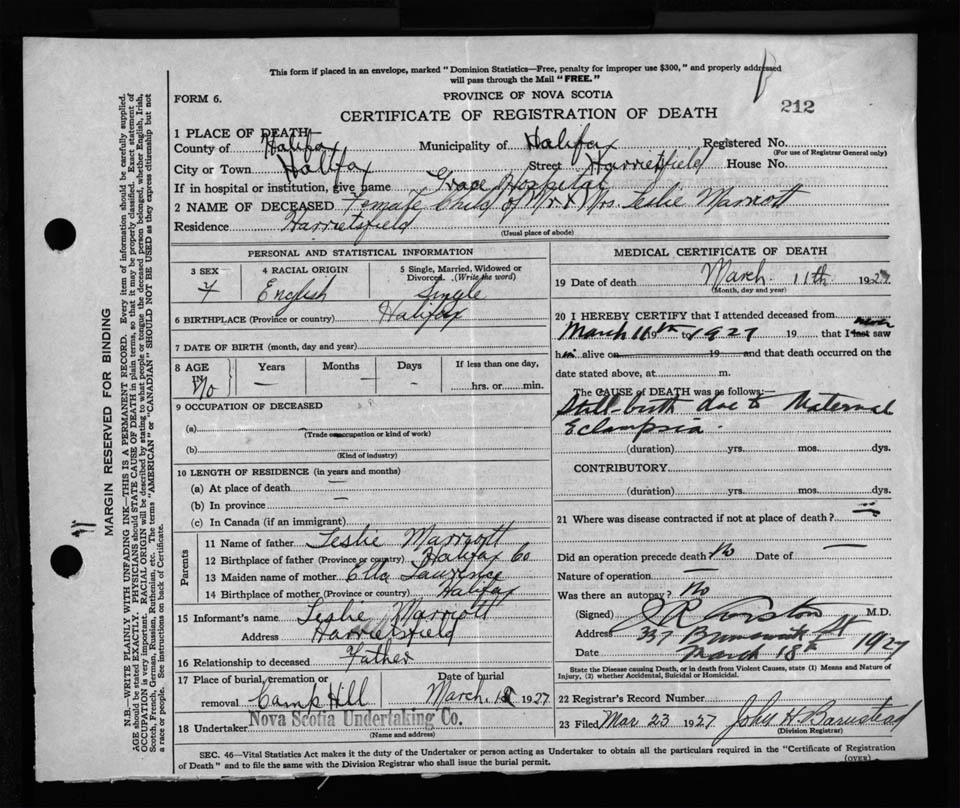 This form if placed in an envelope, marked "Dominion Statistics—Free, penalty for improper use $300," and properly addressed
will pass through the Mail "FREE."
FORM 6.
PROVINCE OF NOVA SCOTIA
CERTIFICATE OF REGISTRATION OF DEATH
212
1 PLACE OF DEATH—
County of Halifax Municipality of Halifax Registered No.
(For use of Registrar General only)
City or Town Halifax Street Harrietsfield House No.
If in hospital or institution, give name Grace Hospital
2 NAME OF DECEASED Female Child of Mr. & Mrs. Leslie Marriott
Residence Harrietsfield
(Usual place of abode)
PERSONAL AND STATISTICAL INFORMATION
3 SEX 4 RACIAL ORIGIN 5 Single, Married, Widowed or
Divorced. (Write the word)
F English Single
6 BIRTHPLACE (Province or country) Halifax
7 DATE OF BIRTH (month, day and year)
8 AGE Years Months Days If less than one day,
IN
No — — - hrs. or min.
9 OCCUPATION OF DECEASED
(a) —
(Trade or occupation or kind of work)
(b)
(Kind of industry)
10 LENGTH OF RESIDENCE (in years and months)
(a) At place of death —
(b) In province —
(c) In Canada (if an immigrant)
Parents
11 Name of father Leslie Marriott
12 Birthplace of father (Province or country) Halifax Co
13 Maiden name of mother Ella Lawrence
14 Birthplace of mother (Province or country) Halifax
15 Informant's name Leslie Marriott
Address Harrietsfield
16 Relationship to deceased Father
17 Place of burial, cremation or Date of burial
removal Camp Hill March 1927
18 Undertaker Nova Scotia Undertaking Co.
(Name and address)
MEDICAL CERTIFICATE OF DEATH
19 Date of death March 11th 1927
(Month, day and year)
20 I HEREBY CERTIFY that I attended deceased from
March 11th 19 to 1927 19 that I last never saw
h alive on 19 and that death occurred on
date stated above, at m.
The CAUSE of DEATH was as follows:
Still-birth due to Maternal
Eclampsia.
(duration) yrs. mos. dys.
CONTRIBUTORY
(duration) yrs. mos. dys.
21 Where was disease contracted if not at place of death?
Did an operation precede death? No Date of —
Nature of operation —
Was there an autopsy? No
(Signed) M.D.
Address 337 Brunswick St
Date March 18th 1927
State the Disease causing Death, or in death from Violent Causes, state (1) Means and Nature of
Injury, (2) whether Accidental, Suicidal or Homicidal.
22 Registrar's Record Number
23 Filed Mar 23 1927 John H Barnstead
(Division Registrar)
SEC. 46—Vital Statistics Act makes it the duty of the Undertaker or person acting as Undertaker to obtain all the particulars required in the "Certificate of Registration
of Death" and to file the same with the Division Registrar who shall issue the burial permit.
(OVER)
MARGIN RESERVED FOR BINDING
N.B.—WRITE PLAINLY WITH UNFADING INK—THIS IS A PERMANENT RECORD. Every item of information should be carefully supplied.
AGE should be stated EXACTLY. PHYSICIANS should STATE CAUSE OF DEATH in plain terms, so that it may be properly classified. Exact statement of
OCCUPATION is very important. RACIAL ORIGIN will be described by stating to what people or tongue the deceased person belonged, whether English, Irish,
Scotch, French, German, Russian, Ruthenian, etc. The terms "AMERICAN" or "CANADIAN" SHOULD NOT BE USED as they express citizenship but not
a race or people. See instructions on back of Certificate.